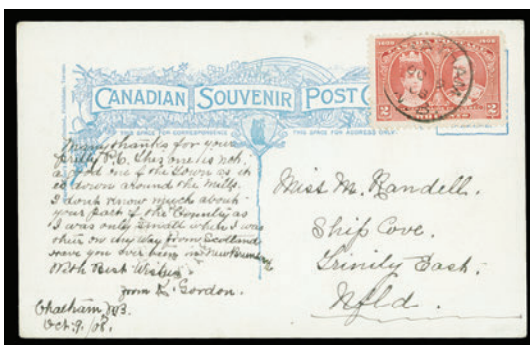 CANADIAN SOUVENIR POST
THIS SPACE FOR CORRESPONDENCE THIS SPACE FOR ADDRESS ONLY
2 2
Many thanks for your
pretty P.C. This one is not
a good one of the Town as it
is down around the Mills.
I dont know much about
your part of the Country as
I was only small when I was
there on my way from Scotland
have you ever been in New Brunswick
With Best Wishes
from K. Gordon.
Chatham NB.
Oct. 9. /08.
Miss M. Randell.
Ship Cove.
Trinity East.
Nfld.